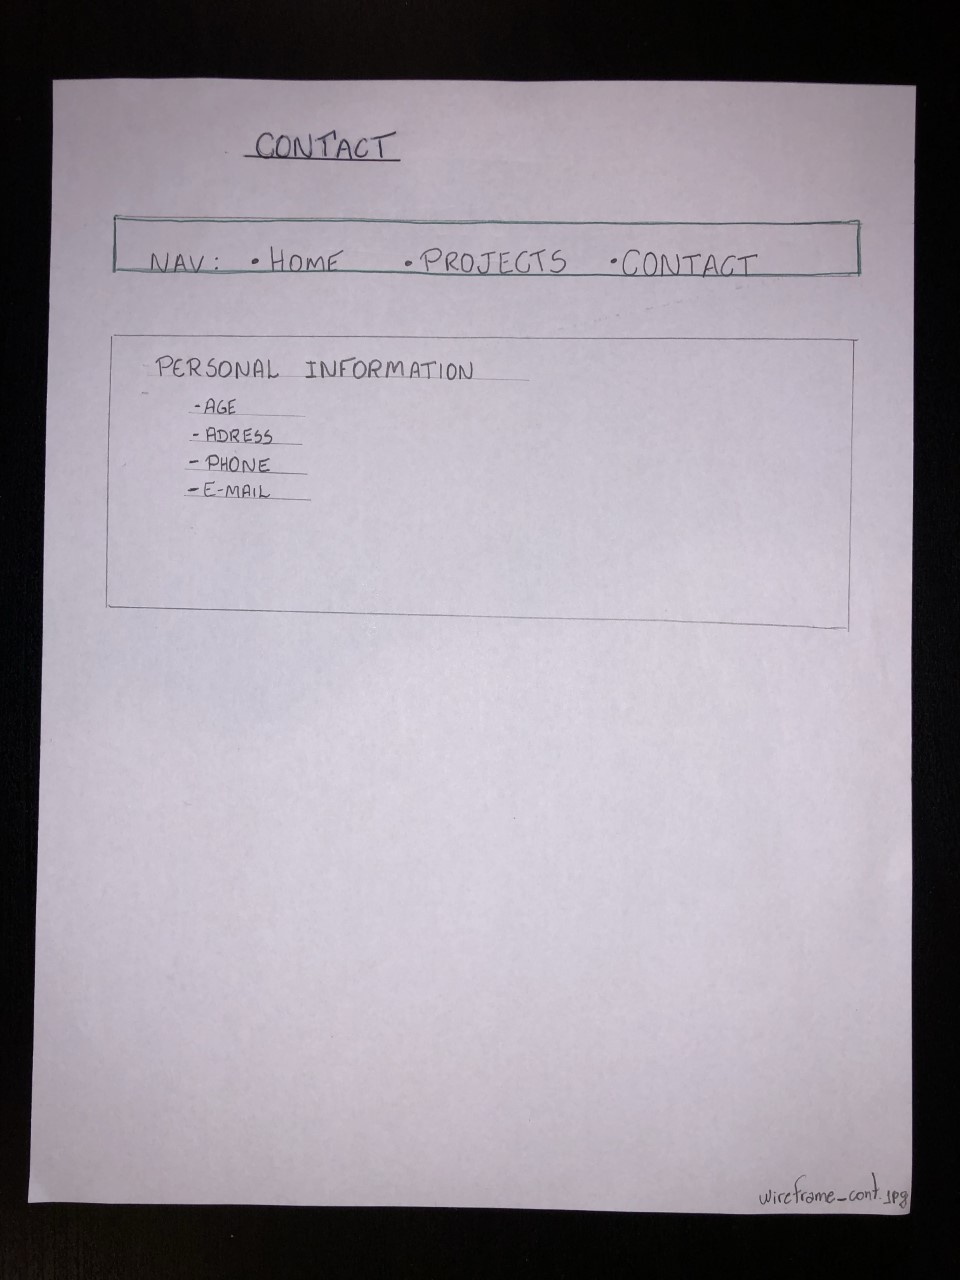 CONTACT
NAV: • HOME • PROJECTS • CONTACT
PERSONAL INFORMATION
- AGE
- ADRESS
- PHONE
- E-MAIL
wireframe_cont.jpg